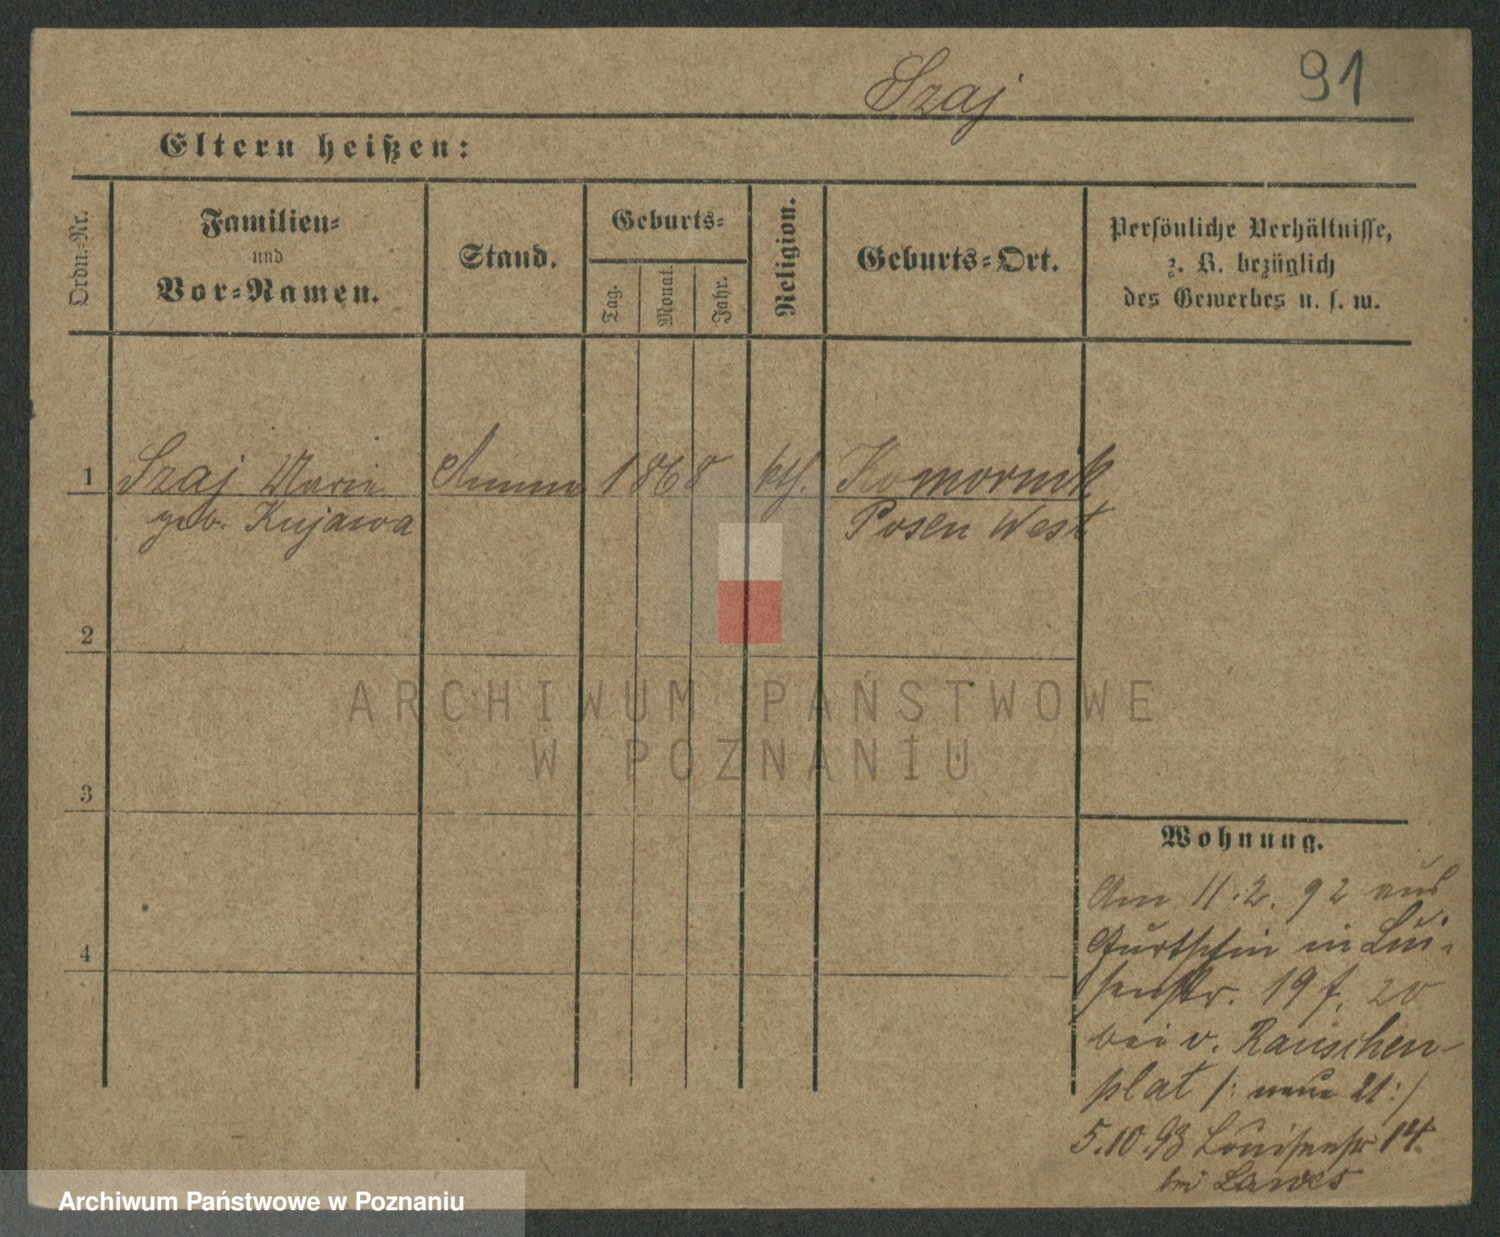 Szaj
91
Eltern heißen:
Ordn.-Nr.
Familien-
und
Vor-Namen.
Stand.
Geburts-
Tag.
Monat.
Jahr.
Religion.
Geburts-Ort.
Persönliche Verhältnisse,
z. B. bezüglich
des Gewerbes u. s. w.
1
Szaj Marie
geb. Kujawa
Amme
1868
kth.
Komornik
Posen West
2
3
4
Wohnung.
Am 11.2.92 aus
Gurtschin in Lui-
senstr. 19 f. 20
bei v. Rauschen-
plat /: neue 21 :/
5.10.93 Louisenstr 14
bei
ARCHIWUM PAŃSTWOWE
W POZNANIU
Archiwum Państwowe w Poznaniu